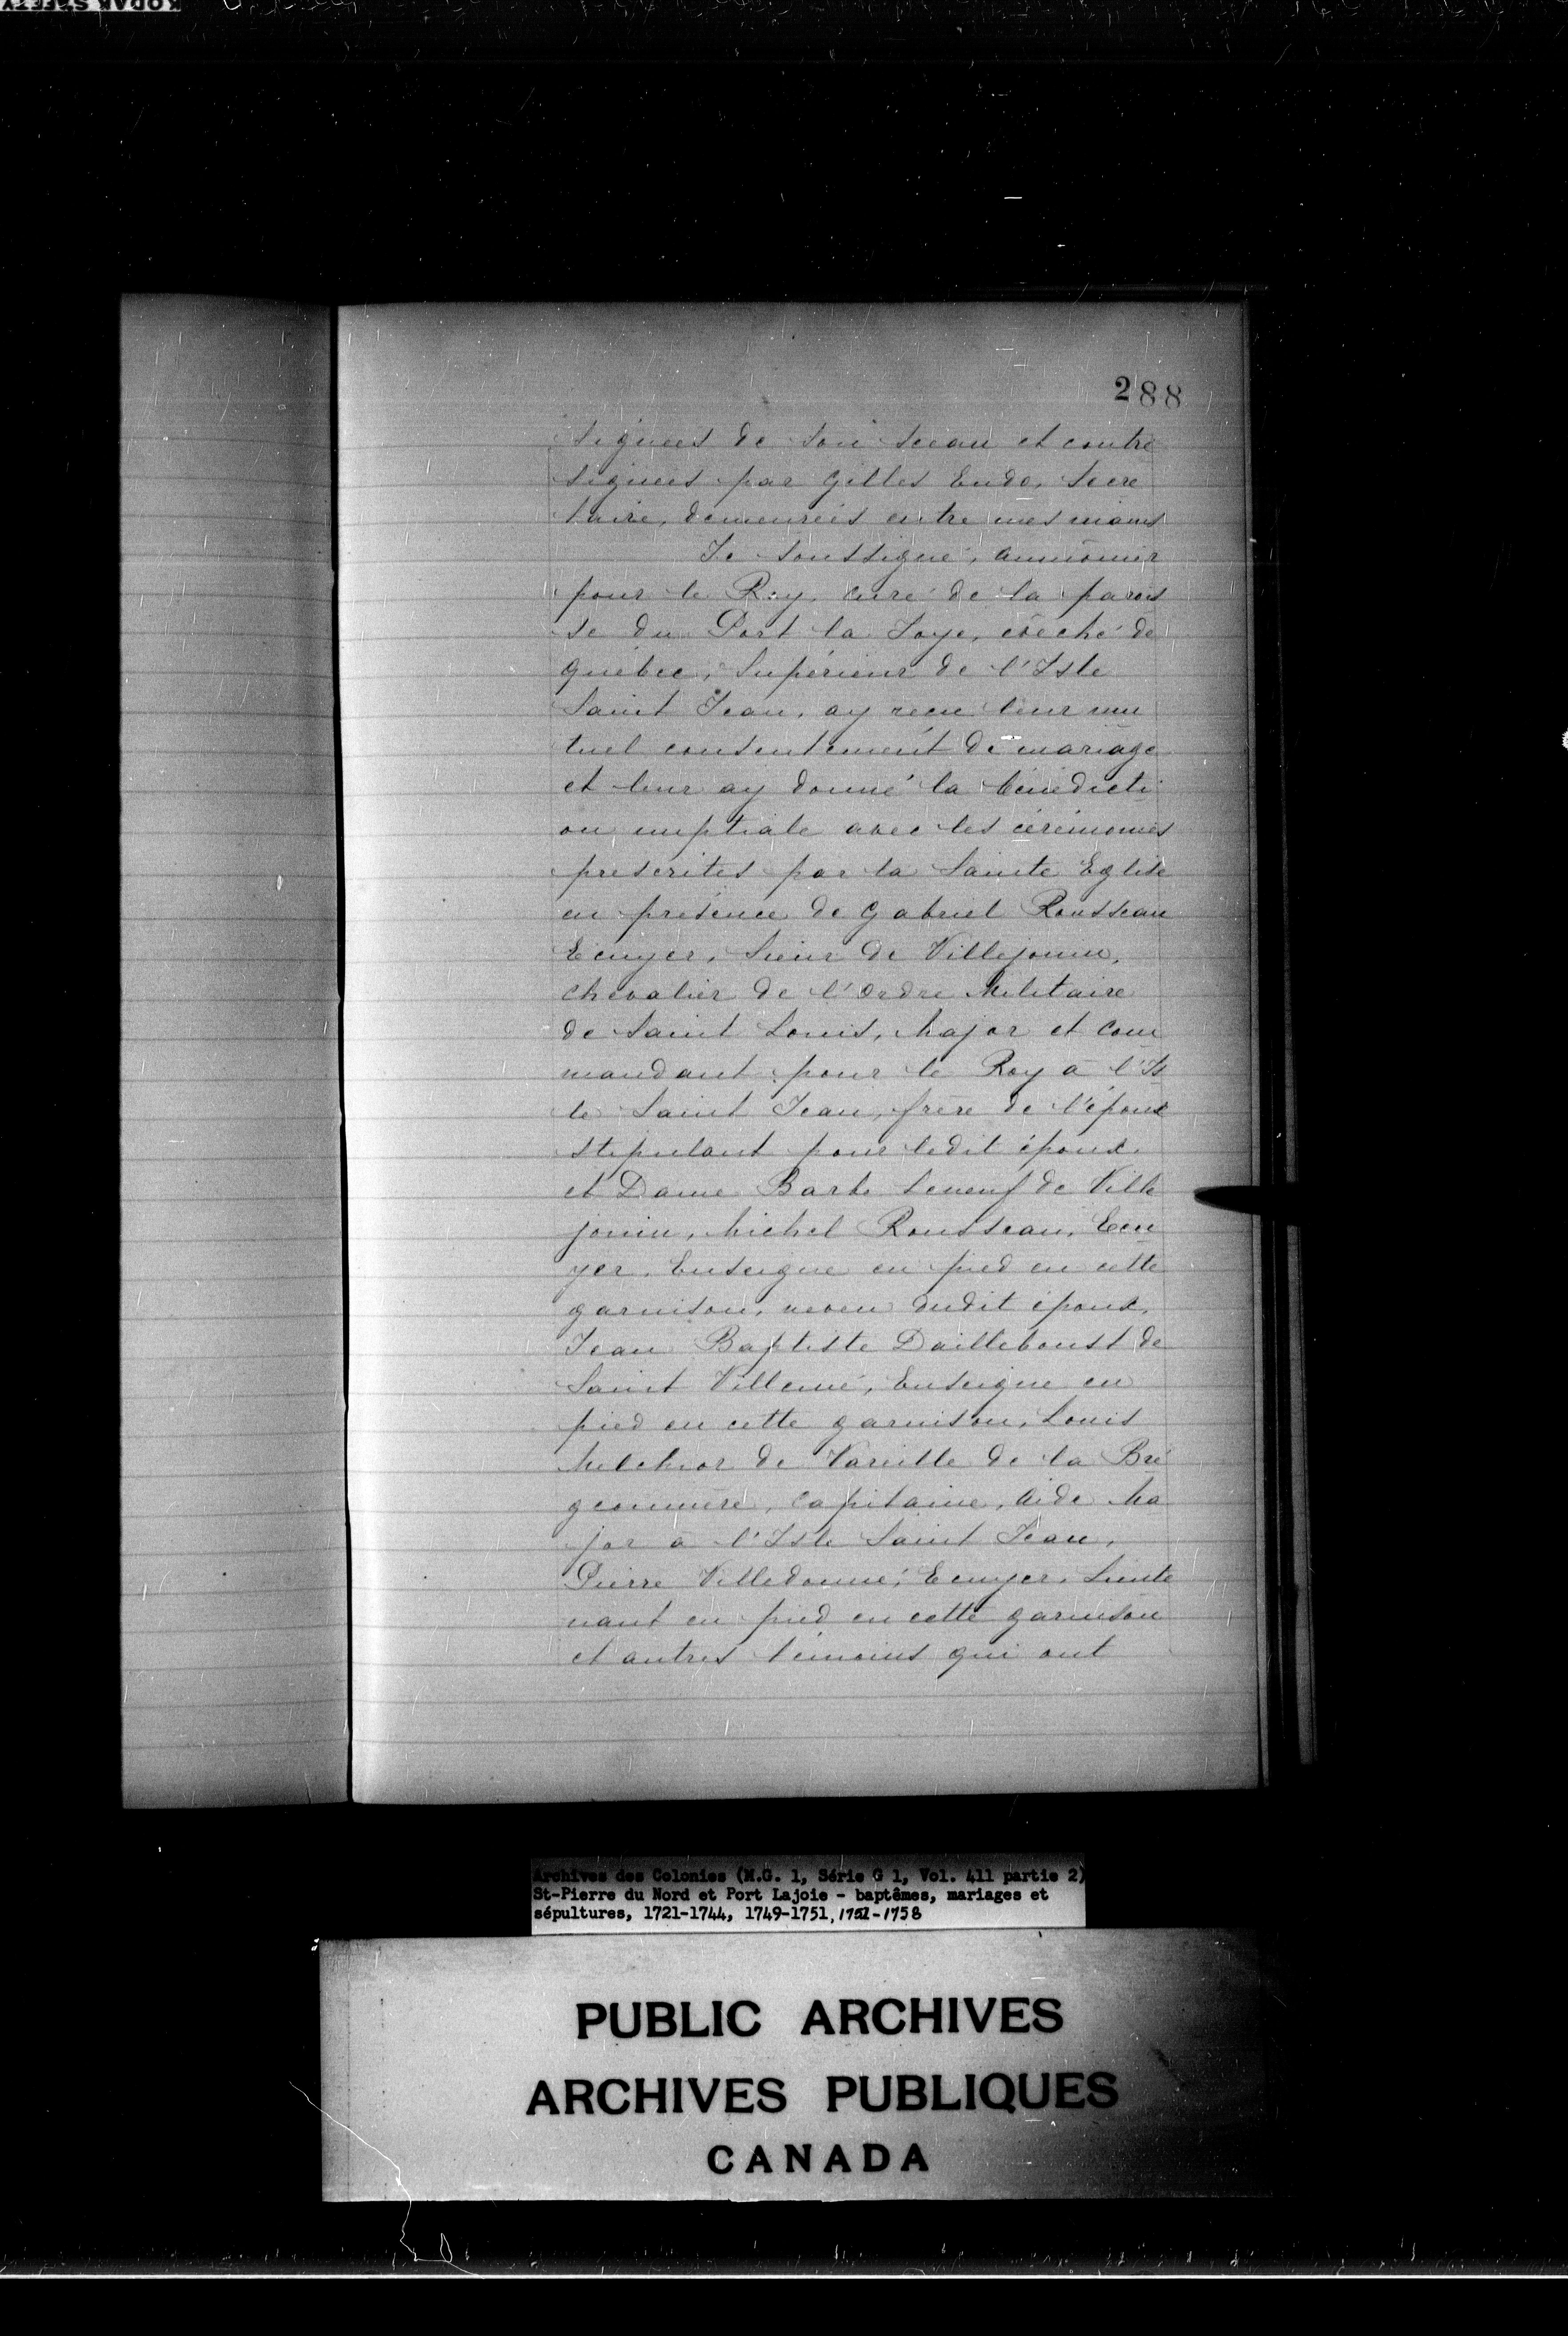 288
signées de son sceau et contre
signées par Gilles Eudo, Secré
taire, demeurées entre mes mains
Je soussigné, aumônier
pour le Roy, curé de la parois
se du Port la Joye, évêché de
Québec, Supérieur de l'Isle
Saint Jean, ay reçu leur mu
tuel consentement de mariage
et leur ay donné la bénédicti
on nuptiale avec les cérémonies
prescrites par la Sainte Eglise
en présence de Gabriel Rousseau
Ecuyer, Sieur de Villejouin,
chevalier de l'Ordre Militaire
de Saint Louis, Major et com
mandant pour le Roy à l'Is
le Saint Jean, frère de l'époux
stipulant pour ledit époux.
et Dame Barbe Leneuf de Ville
jouin, Michel Rousseau, Ecu
yer, Enseigne en pied en cette
garnison, neveu dudit époux,
Jean Baptiste Dailleboust de
Saint Villemé, Enseigne en
pied en cette garnison, Louis
Melchior de Vareille de la Bré
geonnière, Capitaine, Aide Ma
jor à l'Isle Saint Jean,
Pierre Villedonné, Ecuyer, Lieute
nant en pied en cette garnison
et autres témoins qui ont
Archives des Colonies (M.G. 1, Série G 1, Vol. 411 partie 2)
St-Pierre du Nord et Port Lajoie - baptêmes, mariages et
sépultures, 1721-1744, 1749-1751, 1752-1758
PUBLIC ARCHIVES
ARCHIVES PUBLIQUES
CANADA